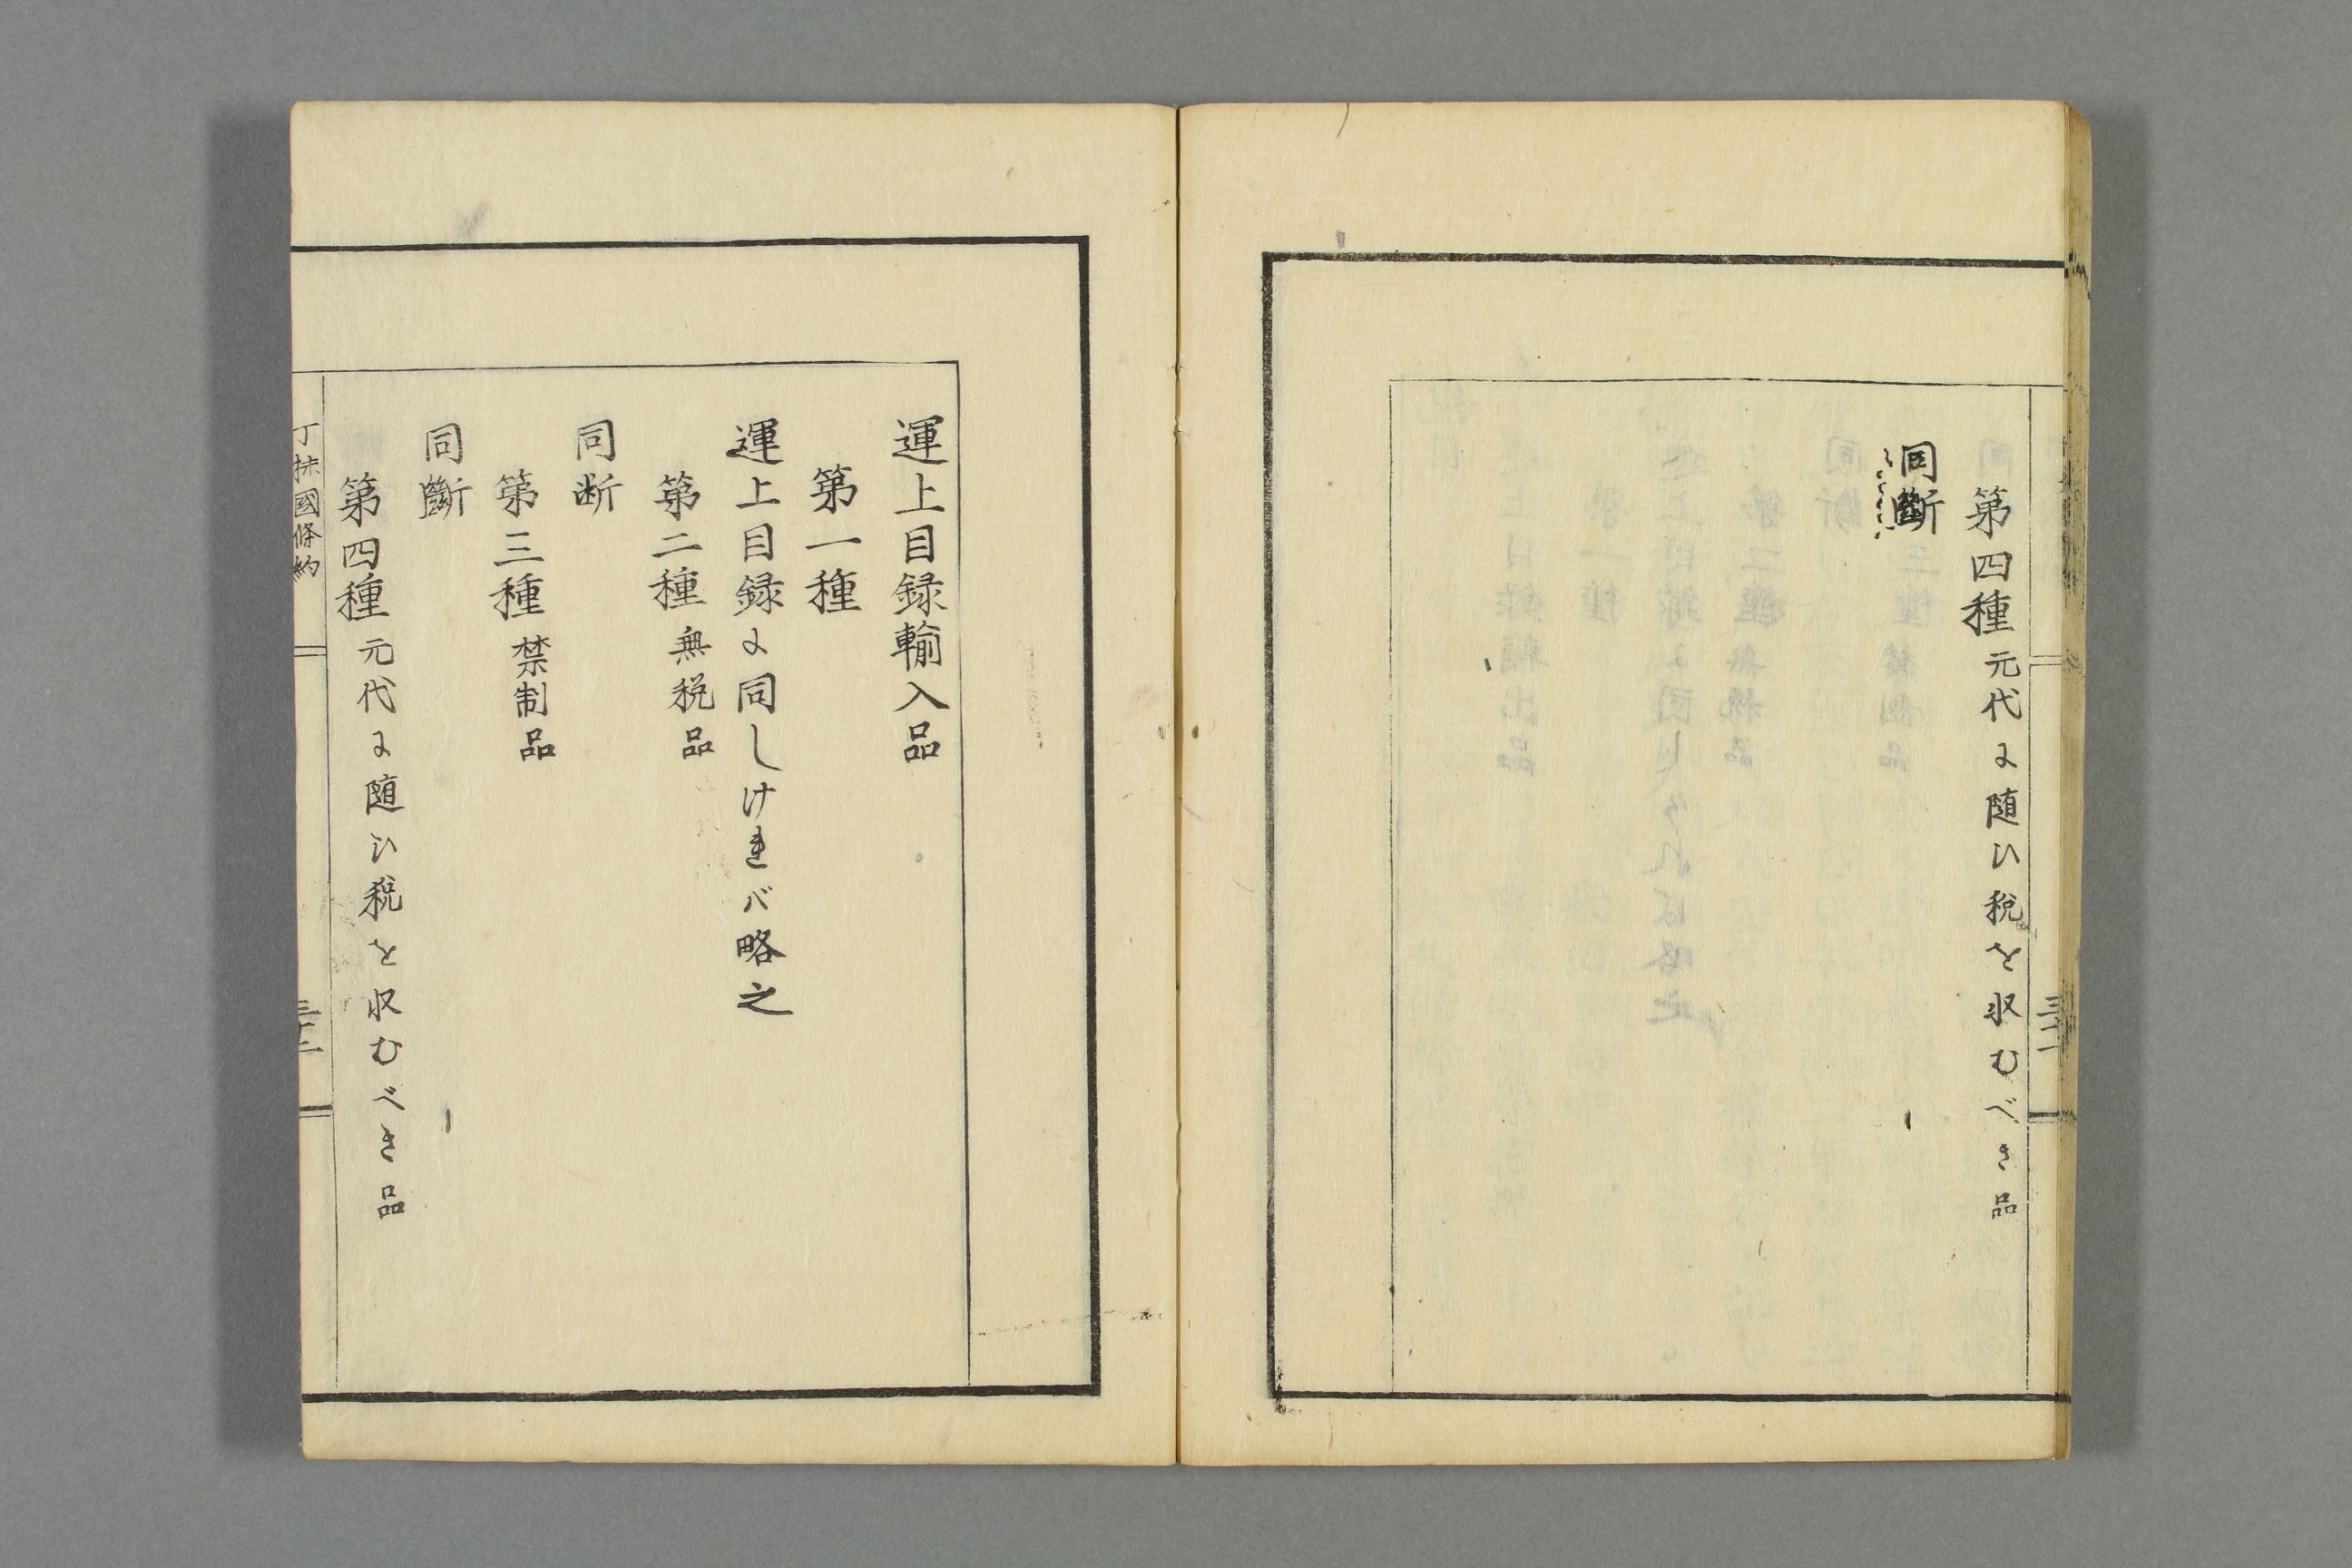 第四種元代に随ひ税を収むべき品
同斷
運上目録輸入品
第一種
運上目録に同しければ略之
第二種無税品
同断
第三種禁制品
同斷
第四種元代に随ひ税を収むべき品
丁抹國條約
三十二